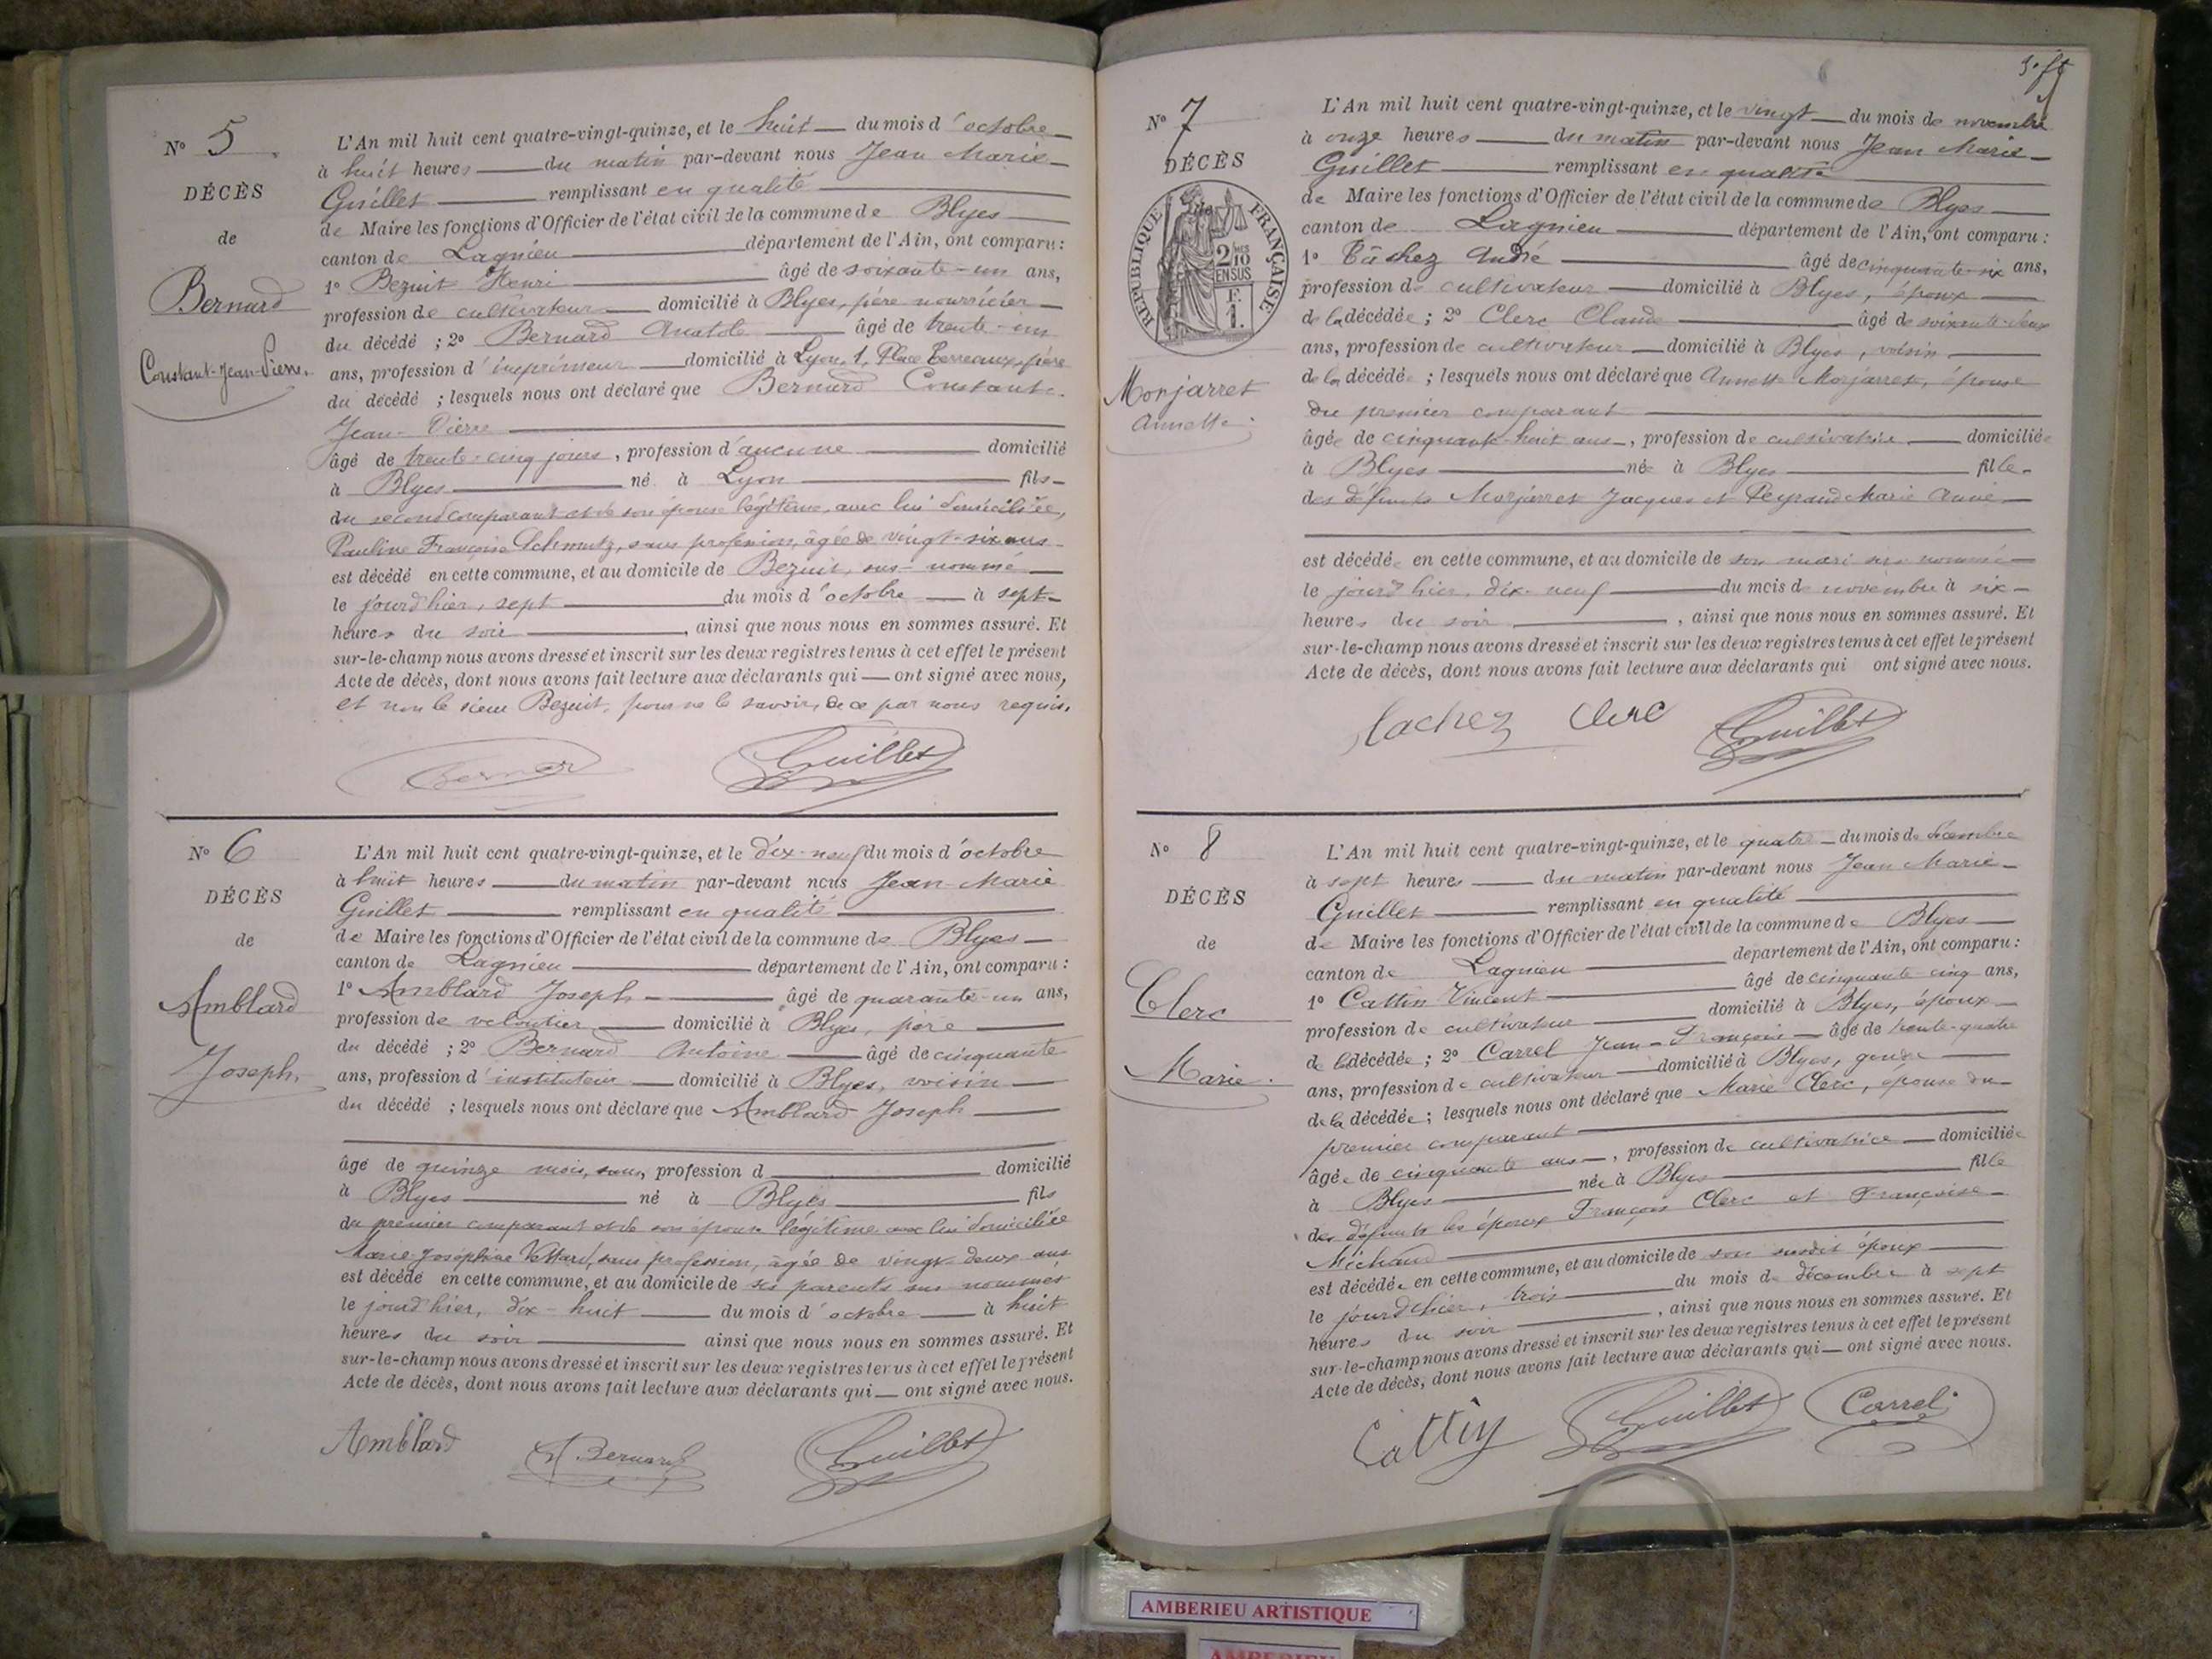 Nº 5
DÉCÈS
de
Bernard
Constant-Jean-Pierre.
L'An mil huit cent quatre-vingt-quinze, et le huit du mois d'octobre
à huit heures du matin par-devant nous Jean Marie
Guillet remplissant en qualité
de Maire les fonctions d'Officier de l'état civil de la commune de Blyes
canton de Lagnieu département de l'Ain, ont comparu :
1º Bezuit Henri âgé de soixante-un ans,
profession de cultivateur domicilié à Blyes, père nourricier
du décédé ; 2º Bernard Anatole âgé de trente-un
ans, profession d'imprimeur domicilié à Lyon, 1, Place Terreaux, père
du décédé ; lesquels nous ont déclaré que Bernard Constant-
Jean-Pierre
âgé de trente-cinq jours, profession d'aucune domicilié
à Blyes né à Lyon fils
du second comparant et de son épouse légitime, avec lui domiciliée,
Pauline Françoise Schmutz, sans profession, âgée de vingt-six ans
est décédé en cette commune, et au domicile de Bezuit, sus-nommé
le jourd'hier, sept du mois d'octobre à sept
heures du soir, ainsi que nous nous en sommes assuré. Et
sur-le-champ nous avons dressé et inscrit sur les deux registres tenus à cet effet le présent
Acte de décès, dont nous avons fait lecture aux déclarants qui ont signé avec nous,
et non le sieur Bezuit, pour ne le savoir, de ce par nous requis.
Bernard Guillet
Nº 6
DÉCÈS
de
Amblard
Joseph.
L'An mil huit cent quatre-vingt-quinze, et le dix-neuf du mois d'octobre
à huit heures du matin par-devant nous Jean Marie
Guillet remplissant en qualité
de Maire les fonctions d'Officier de l'état civil de la commune de Blyes
canton de Lagnieu département de l'Ain, ont comparu :
1º Amblard Joseph âgé de quarante-un ans,
profession de veloutier domicilié à Blyes, père
du décédé ; 2º Bernard Antoine âgé de cinquante
ans, profession d'instituteur domicilié à Blyes, voisin
du décédé ; lesquels nous ont déclaré que Amblard Joseph
âgé de quinze mois, sans, profession d domicilié
à Blyes né à Blyes fils
du premier comparant et de son épouse légitime avec lui domiciliée
Marie-Joséphine Vettard, sans profession, âgée de vingt-deux ans
est décédé en cette commune, et au domicile de ses parents sus nommés
le jourd'hier, dix-huit du mois d'octobre à huit
heures du soir ainsi que nous nous en sommes assuré. Et
sur-le-champ nous avons dressé et inscrit sur les deux registres tenus à cet effet le présent
Acte de décès, dont nous avons fait lecture aux déclarants qui ont signé avec nous.
Amblard A Bernard Guillet
Nº 7
DÉCÈS
RÉPUBLIQUE FRANÇAISE
2/10 EN SUS
F. 1.
Morjarret
Annette
L'An mil huit cent quatre-vingt-quinze, et le vingt du mois de novembre
à onze heures du matin par-devant nous Jean Marie
Guillet remplissant en qualité
de Maire les fonctions d'Officier de l'état civil de la commune de Blyes
canton de Lagnieu département de l'Ain, ont comparu :
1º Tâchez André âgé de cinquante-six ans,
profession de cultivateur domicilié à Blyes, époux
de la décédée ; 2º Clerc Claude âgé de soixante-deux
ans, profession de cultivateur domicilié à Blyes, voisin
de la décédée ; lesquels nous ont déclaré que Annette Morjarret, épouse
du premier comparant
âgée de cinquante-huit ans, profession de cultivatrice domiciliée
à Blyes née à Blyes fille
des défunts Morjarret Jacques et Peyraud Marie Anne
est décédée en cette commune, et au domicile de son mari sus nommé
le jourd'hier, dix-neuf du mois de novembre à six
heures du soir, ainsi que nous nous en sommes assuré. Et
sur-le-champ nous avons dressé et inscrit sur les deux registres tenus à cet effet le présent
Acte de décès, dont nous avons fait lecture aux déclarants qui ont signé avec nous.
Tachez Clerc Guillet
Nº 8
DÉCÈS
de
Clerc
Marie.
L'An mil huit cent quatre-vingt-quinze, et le quatre du mois de décembre
à sept heures du matin par-devant nous Jean Marie
Guillet remplissant en qualité
de Maire les fonctions d'Officier de l'état civil de la commune de Blyes
canton de Lagnieu département de l'Ain, ont comparu :
1º Cattin Vincent âgé de cinquante-cinq ans,
profession de cultivateur domicilié à Blyes, époux
de la décédée ; 2º Carrel Jean-François âgé de trente-quatre
ans, profession de cultivateur domicilié à Blyes, gendre
de la décédée ; lesquels nous ont déclaré que Marie Clerc, épouse du
premier comparant
âgée de cinquante ans, profession de cultivatrice domiciliée
à Blyes née à Blyes fille
des défunts les époux François Clerc et Françoise
Michaud
est décédée en cette commune, et au domicile de son susdit époux
le jourd'hier, trois du mois de décembre à sept
heures du soir, ainsi que nous nous en sommes assuré. Et
sur-le-champ nous avons dressé et inscrit sur les deux registres tenus à cet effet le présent
Acte de décès, dont nous avons fait lecture aux déclarants qui ont signé avec nous.
Cattin Guillet Carrel
AMBERIEU ARTISTIQUE
AMBERIEU